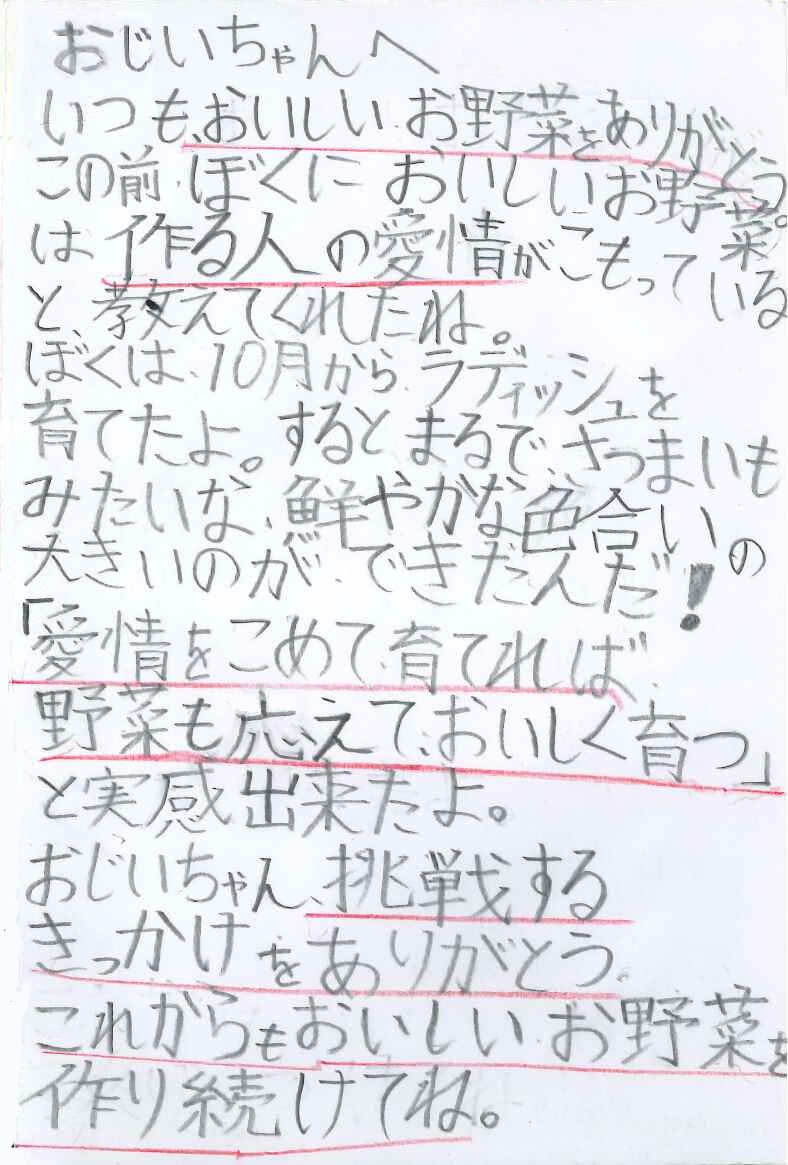 おじいちゃんへ
いつも、おいしいお野菜をありがとう。
この前、ぼくにおいしいお野菜
は作る人の愛情がこもっている
と、教えてくれたね。
ぼくは、10月から、ラディッシュを
育てたよ。するとまるで、さつまいも
みたいな、鮮やかな色合いの
大きいのが、できたんだ!
「愛情をこめて、育てれば、
野菜も応えて、おいしく育つ」
と実感出来たよ。
おじいちゃん、挑戦する
きっかけをありがとう。
これからもおいしいお野菜を
作り続けてね。